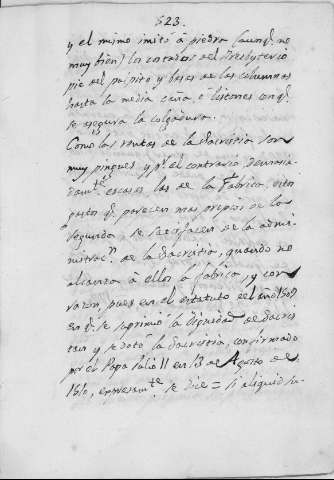 623.
y el mismo imitó á piedra (aunq.e no
muy bien) los costados del Presbyterio
pie del pulpito y bases de las columnas
hasta la media caña ó listones con q.e
se asegura la colgadura.
Como las rentas de la Sacristia son
muy pingues y p.r el contrario demasia-
dam.te escasas las de la Fabrica, otros
gastos q.e parecen mas propios de los
segunda se satisfacen de la admi-
nistrac.n de la Sacristia, quando no
alcanza á ellos la fabrica, y con
razon, pues en el estatuto del año 1509
en q.e se suprimió la Dignidad de Sacris
tan y se dotó la Sacristia, confirmado
por el Papa Julio II en 13 de Agosto de
1510, expresam.te se dice = si aliquid su-